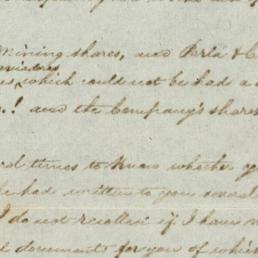 mining shares, and Perla & C
which could not be had a
! and the Company's shares
times to know whether yo
had written to you several
I do not recollect if I have
documents for you of which